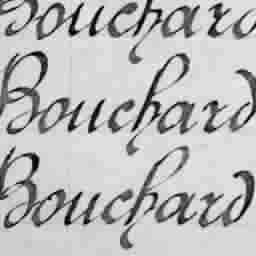 Bouchard
Bouchard
Bouchard